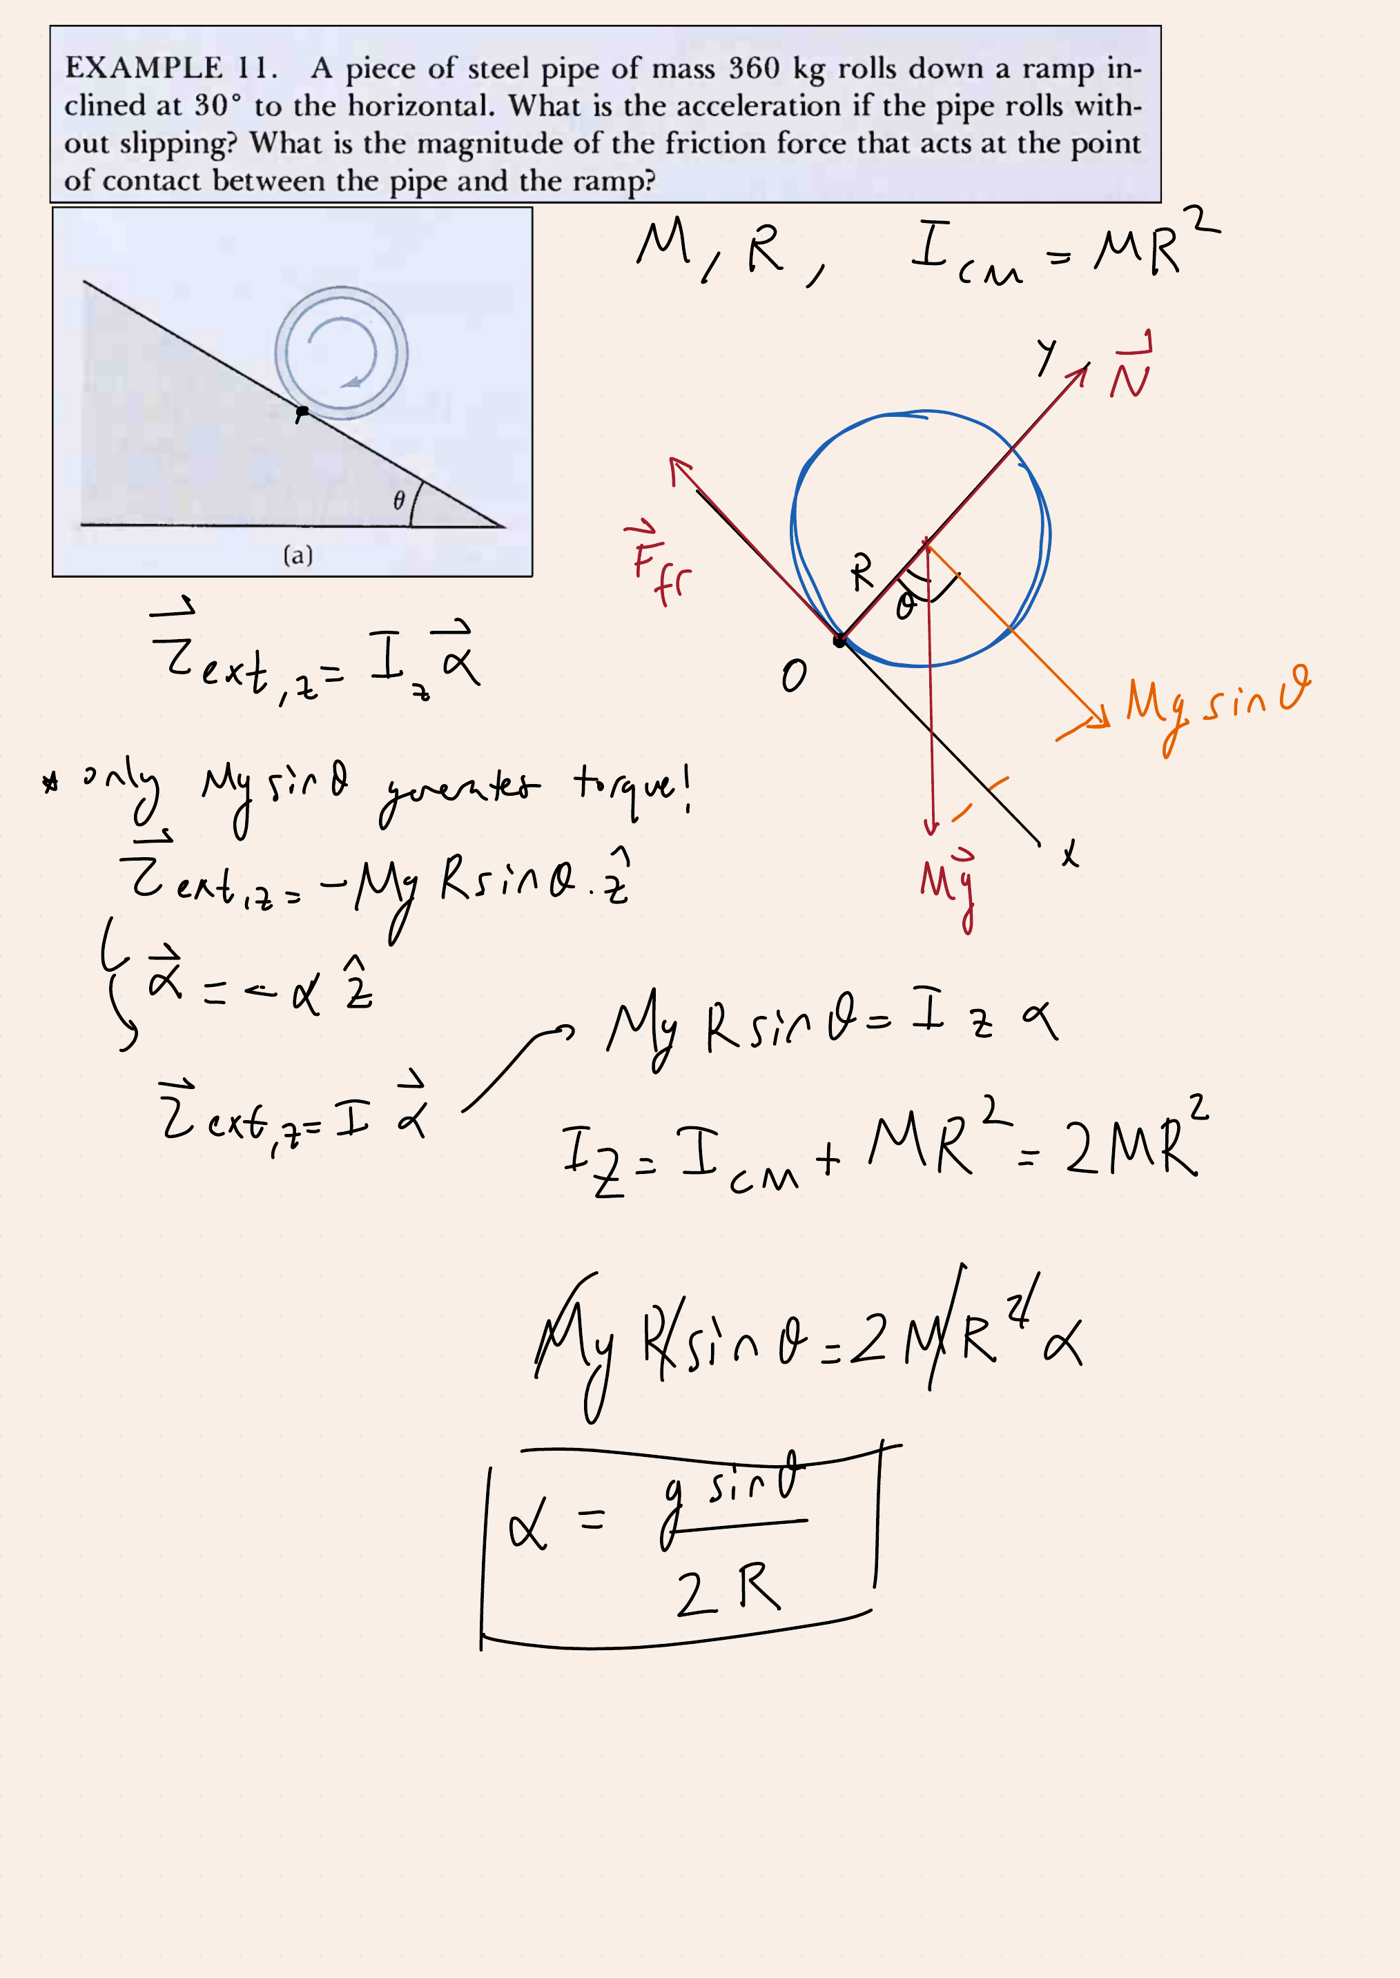 EXAMPLE 11. A piece of steel pipe of mass 360 kg rolls down a ramp in-
clined at 30° to the horizontal. What is the acceleration if the pipe rolls with-
out slipping? What is the magnitude of the friction force that acts at the point
of contact between the pipe and the ramp?
M, R, I_CM = MR²
θ
(a)
y
N⃗
F⃗_fr
R
θ
O
Mg sinθ
x
Mg⃗
τ⃗_ext,z = I_z α⃗
* only Mg sinθ generates torque!
τ⃗_ext,z = -Mg R sinθ . ẑ
α⃗ = -α ẑ
τ⃗_ext,z = I α⃗
Mg R sinθ = I_z α
I_z = I_CM + MR² = 2MR²
Mg R sinθ = 2MR² α
α = g sinθ / 2R